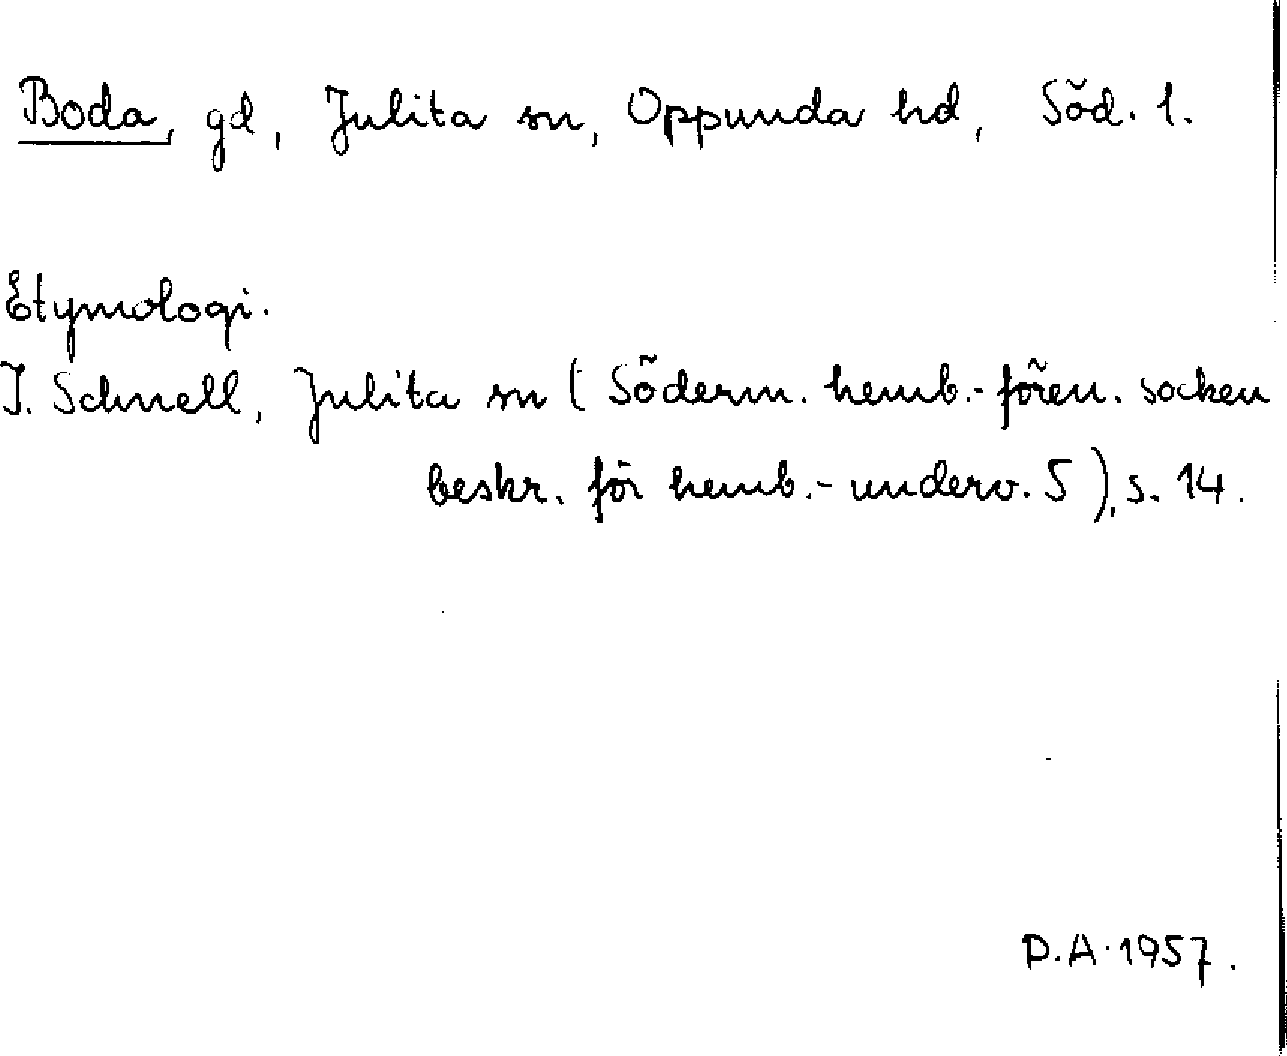 Boda, gd, Julita sn, Oppunda hd, Söd. l.
Etymologi.
I. Schnell, Julita sn (Söderm. hemb.-fören. socken
beskr. för hemb.-underv. 5), s. 14.
D.A. 1957.